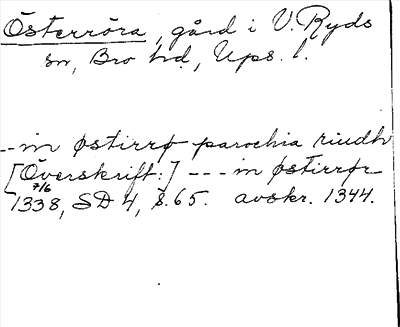 Österröra, gård i V. Ryds
sn, Bro hd, Ups. l.
--- in østirrø parochia riudh
[Överskrift:] --- in østirrør
7/6
1338, SD 4, s. 65. avskr. 1344.